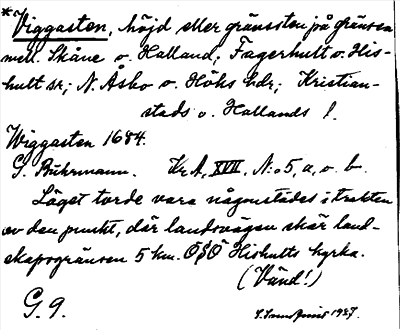 *Viggasten, höjd eller gränssten på gränsen
mell. Skåne o. Halland, Fagerhult o. His-
hult sr; N. Åsbo o. Höks hdr; Kristian-
stads o. Hallands l.
Wiggasten 1684.
G. Buhrmann. Kr A, XVII, N:o 5, a, o. b.
Läget torde vara någonstädes i trakten
av den punkt, där landsvägen skär land-
skapsgränsen 5 km. OSO Hishults kyrka.
(Vänd!)
G. 9. 1927.